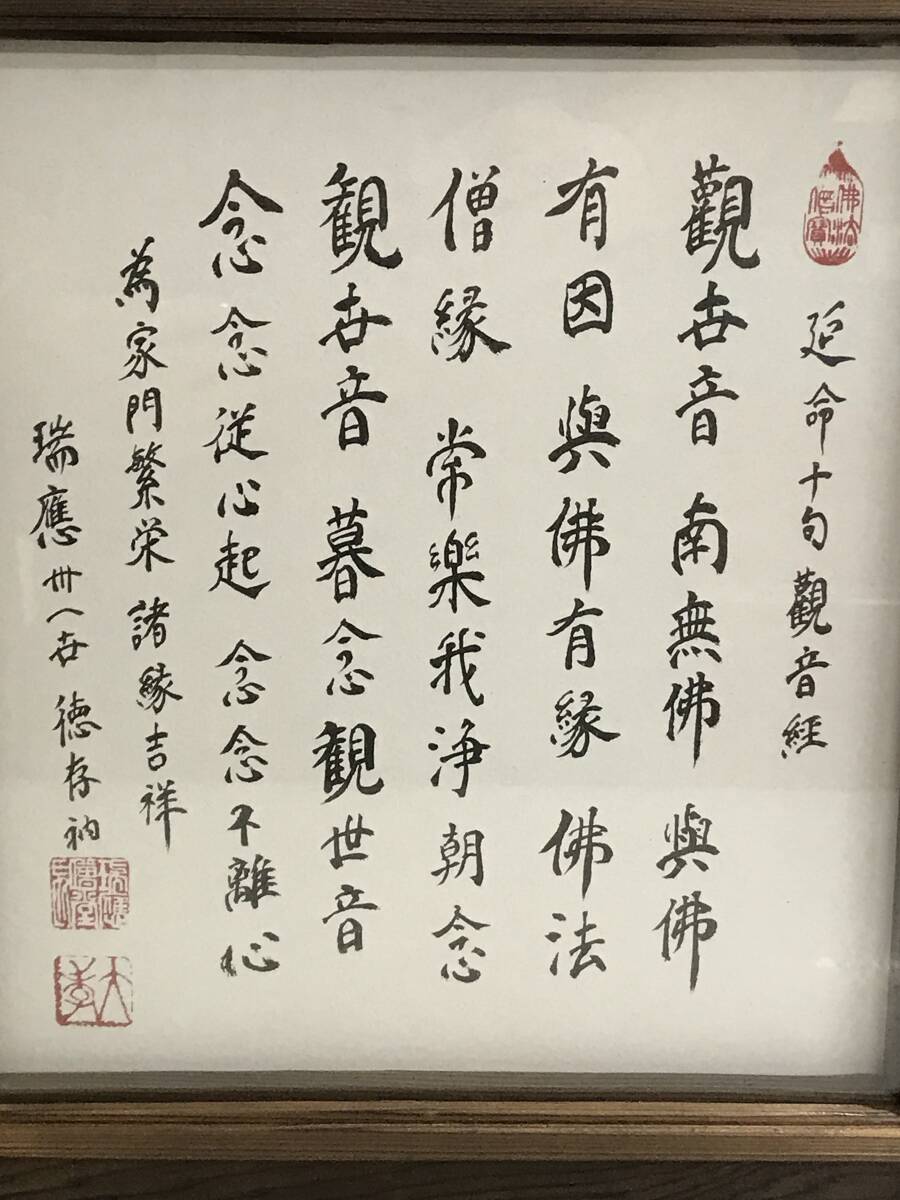 佛法僧寶
延命十句觀音經
觀世音 南無佛 與佛
有因 與佛有縁 佛法
僧縁 常樂我浄 朝念
観世音 暮念観世音
念念從心起 念念不離心
為家門繁栄 諸縁吉祥
瑞應卅八世 徳存衲